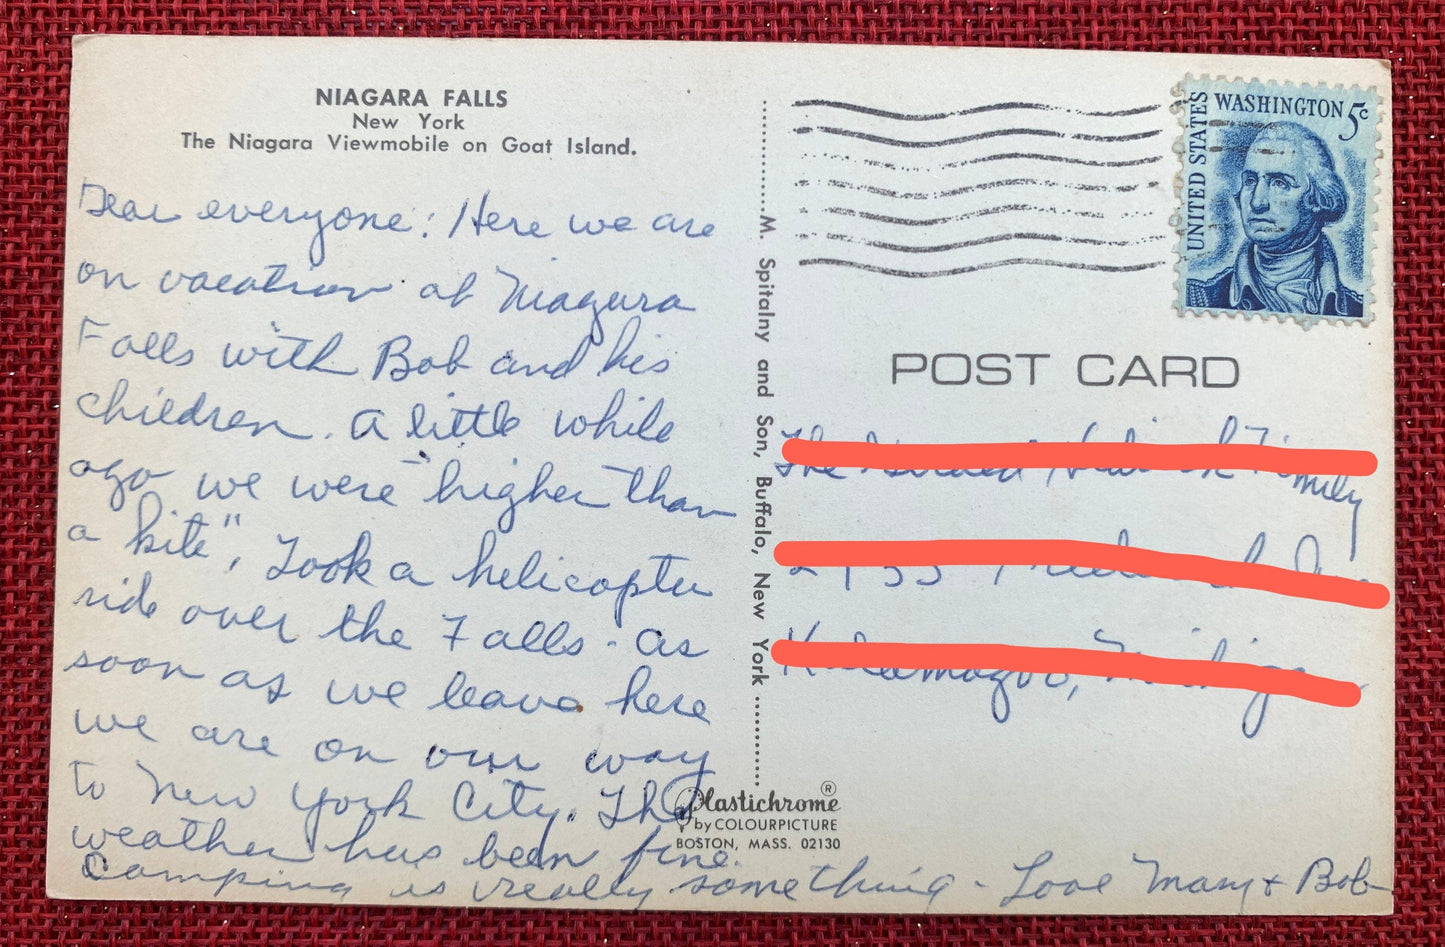 NIAGARA FALLS
New York
The Niagara Viewmobile on Goat Island.
Dear everyone: Here we are
on vacation at Niagara
Falls with Bob and his
children. A little while
ago we were "higher than
a kite", Took a helicopter
ride over the Falls - As
soon as we leave here
we are on our way
to New York City. The
weather has been fine.
Camping is really something - Love Mary & Bob
M. Spitalny and Son, Buffalo, New York
Plastichrome ®
by COLOURPICTURE
BOSTON, MASS. 02130
UNITED STATES
WASHINGTON 5c
POST CARD
The
Kalamazoo, Michigan